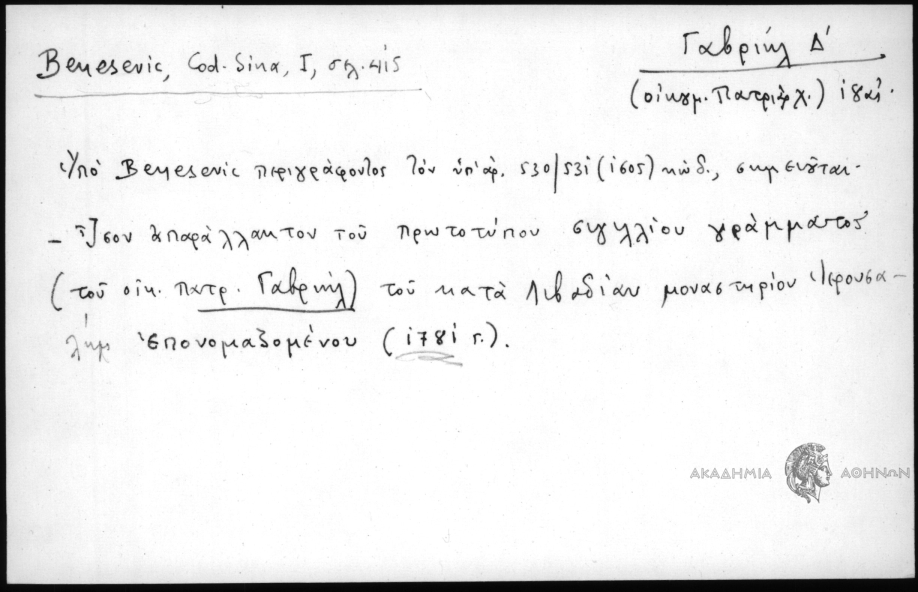 Benesevic, Cod. Sina, I, σελ. 415
Γαβριήλ Δ'
(οἰκουμ. Πατριάρχ.) 1781.
Ὑπό Benesevic περιγράφοντος τόν ὑπ' ἀρ. 530/531 (1605) κώδ., σημειοῦται.
- Ἴσον ἀπαράλλακτον τοῦ πρωτοτύπου σιγιλλίου γράμματος
(τοῦ οἰκ. πατρ. Γαβριήλ) τοῦ κατά Λιβαδίαν μοναστηρίου Ἱερουσα-
λήμ ἐπονομαζομένου (1781 r.).
ΑΚΑΔΗΜΙΑ ΑΘΗΝΩΝ